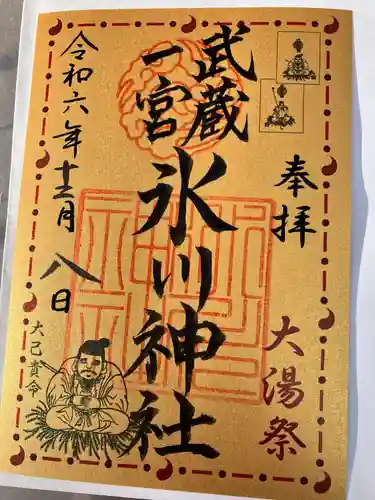 奉拝
大湯祭
武蔵
一宮
氷川神社
令和六年十二月八日
大己貴命